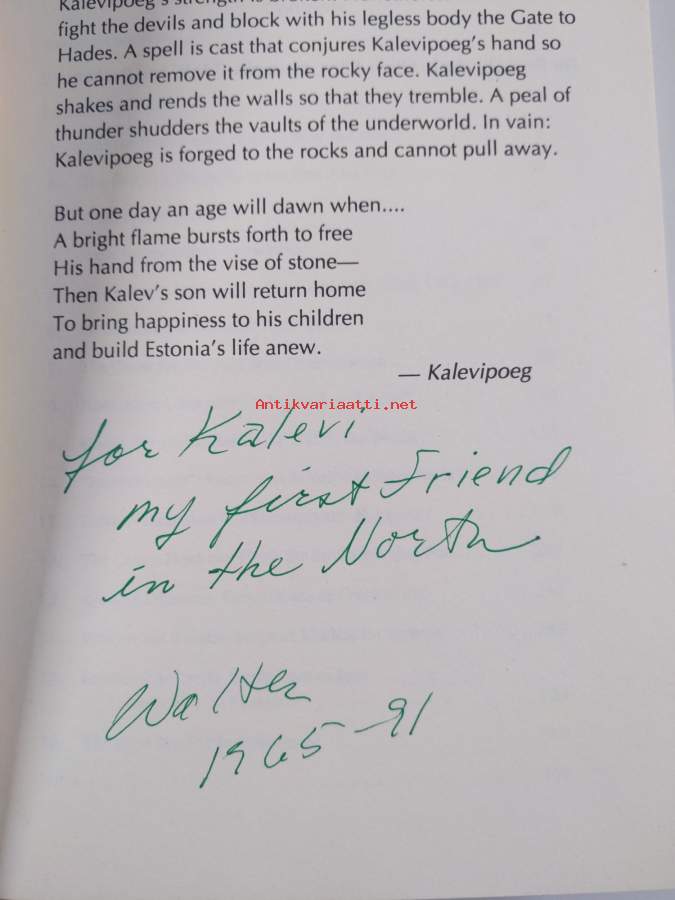 Kalevipoeg's strength is
fight the devils and block with his legless body the Gate to
Hades. A spell is cast that conjures Kalevipoeg's hand so
he cannot remove it from the rocky face. Kalevipoeg
shakes and rends the walls so that they tremble. A peal of
thunder shudders the vaults of the underworld. In vain:
Kalevipoeg is forged to the rocks and cannot pull away.
But one day an age will dawn when....
A bright flame bursts forth to free
His hand from the vise of stone—
Then Kalev's son will return home
To bring happiness to his children
and build Estonia's life anew.
— Kalevipoeg
Antikvariaatti.net
for Kalevi
my first Friend
in the North
Walter
1965-91